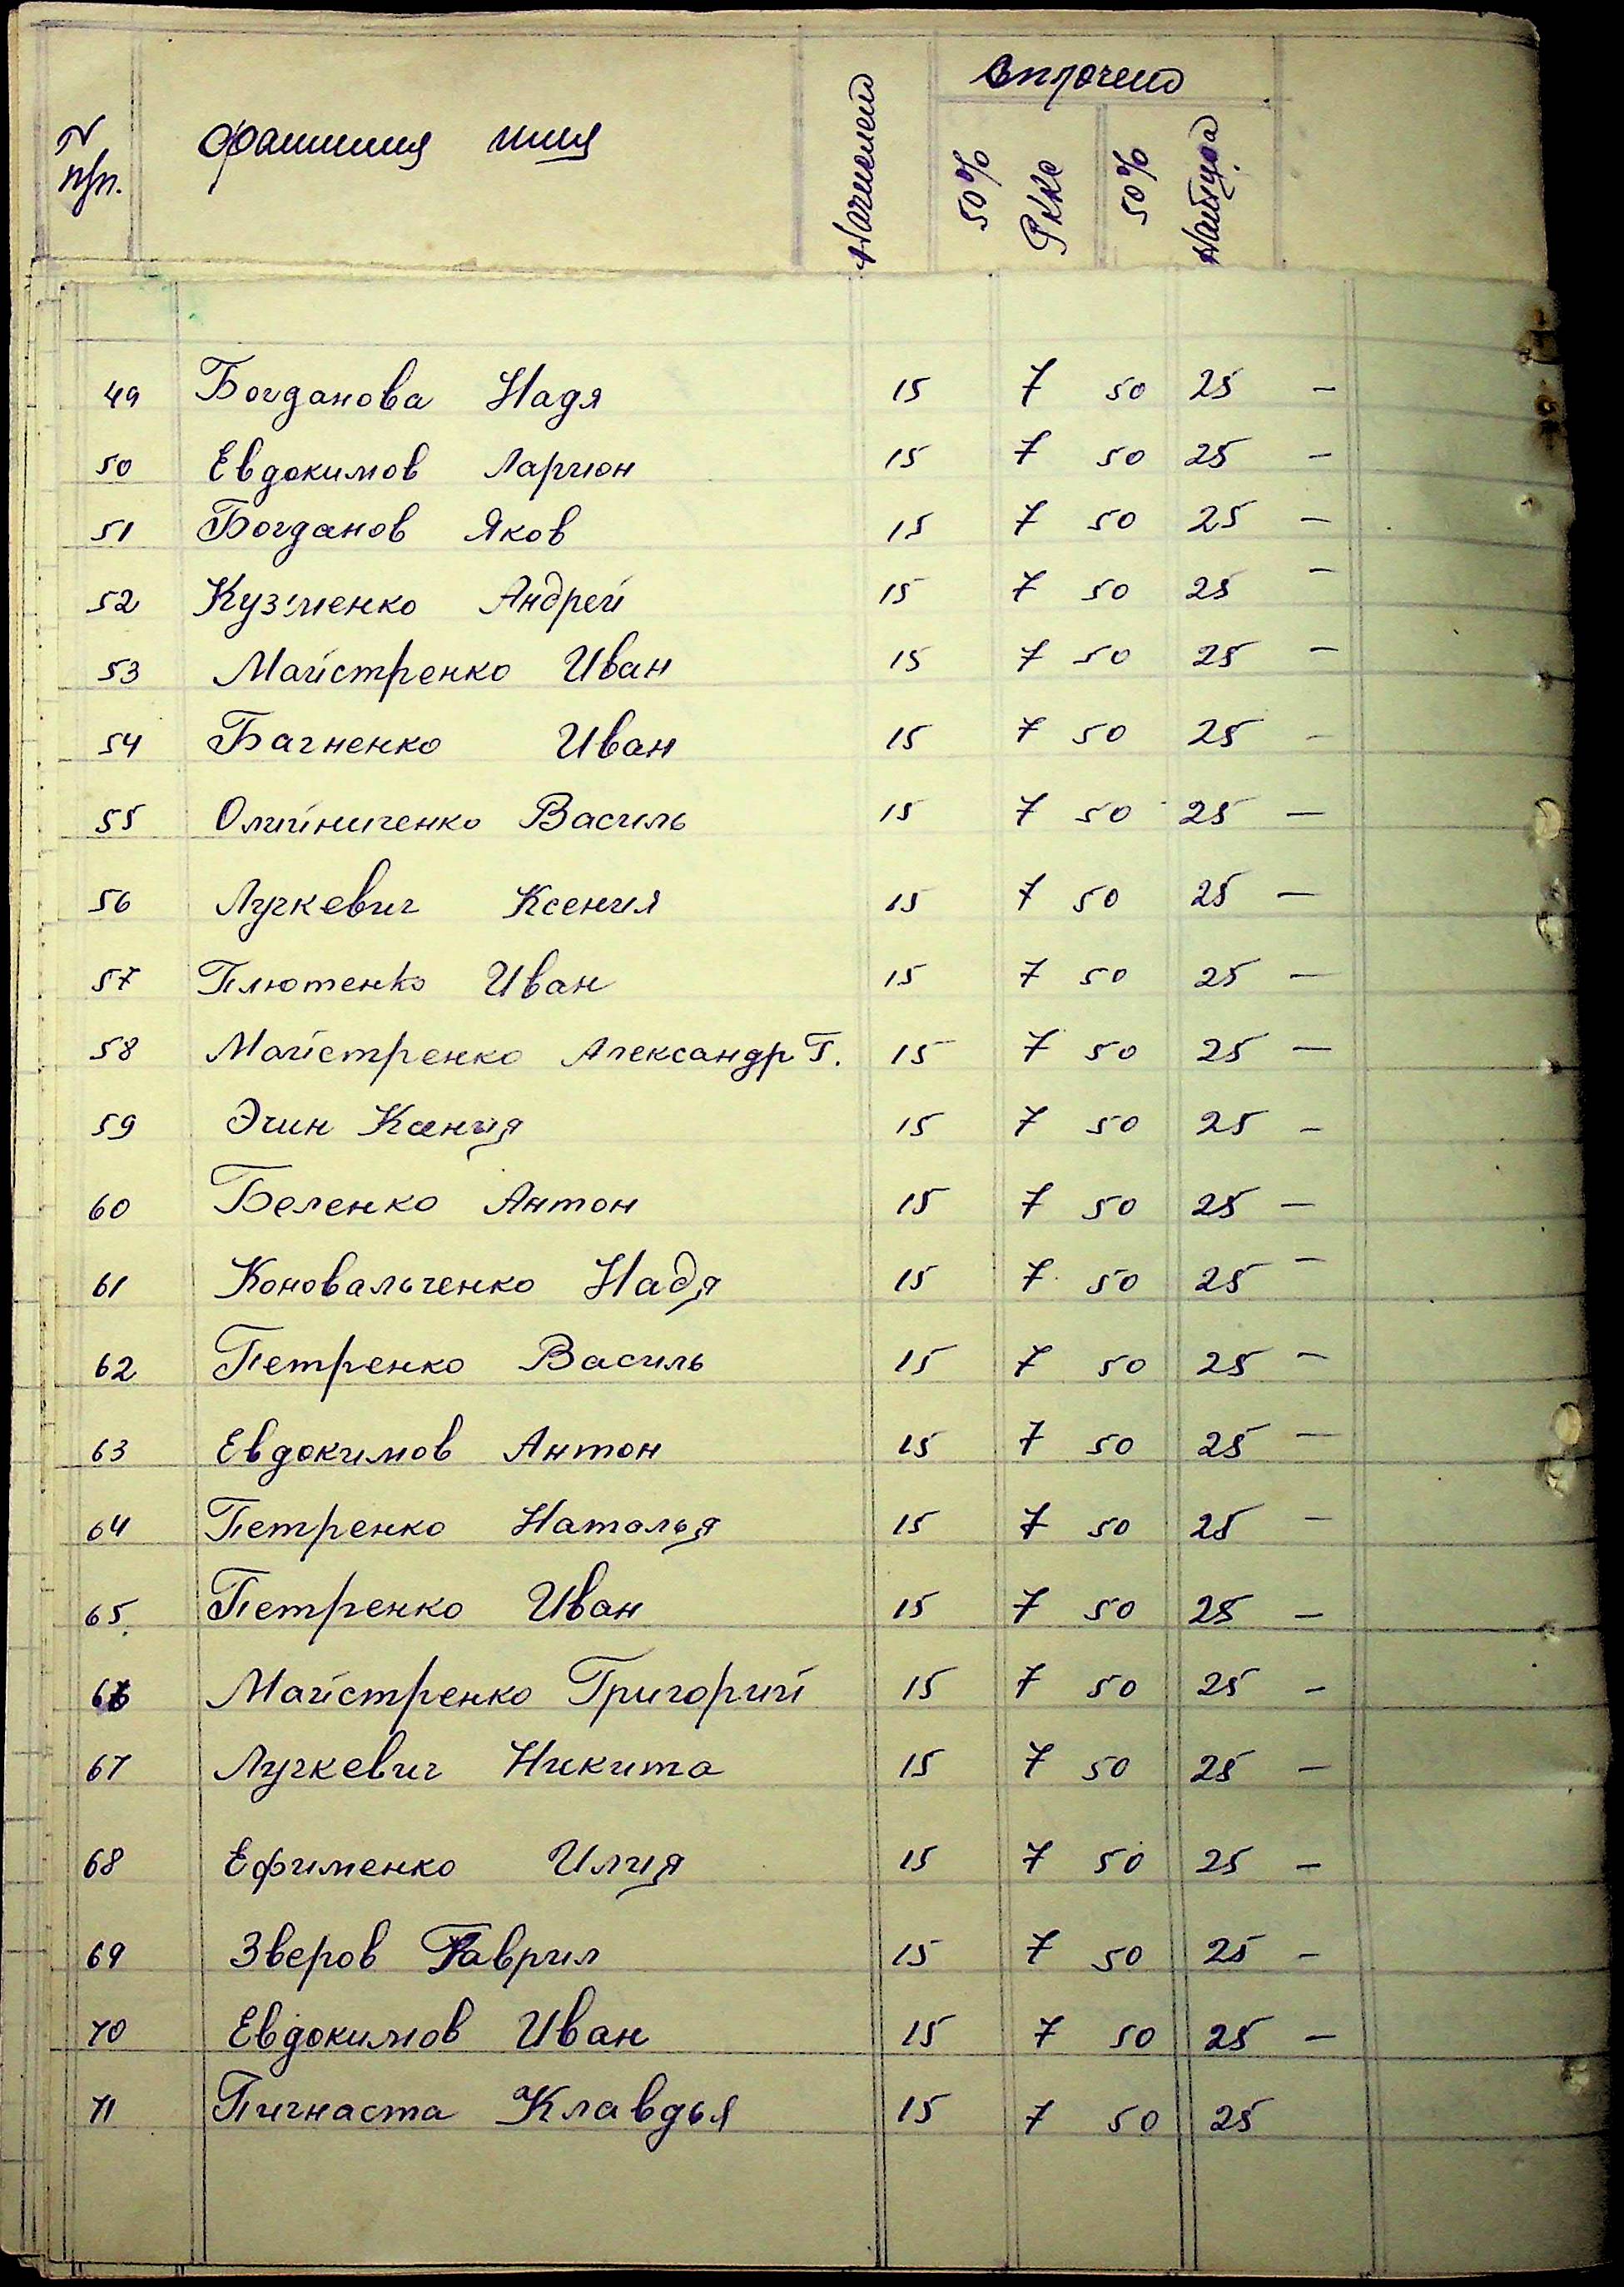 N п/п. фамилия имя Начислено вплочено
50% РККС 50%
49 Богданова Надя 15 7 50 25 —
50 Евдокимов Ларион 15 7 50 25 —
51 Богданов Яков 15 7 50 25 —
52 Кузменко Андрей 15 7 50 25 —
53 Майстренко Иван 15 7 50 25 —
54 Багненко Иван 15 7 50 25 —
55 Олийниченко Василь 15 7 50 25 —
56 Лучкевич Ксения 15 7 50 25 —
57 Плютенко Иван 15 7 50 25 —
58 Майстренко Александр Г. 15 7 50 25 —
59 Эчин Ксения 15 7 50 25 —
60 Беленко Антон 15 7 50 25 —
61 Коновальченко Надя 15 7 50 25 —
62 Петренко Василь 15 7 50 25 —
63 Евдокимов Антон 15 7 50 25 —
64 Петренко Наталья 15 7 50 25 —
65. Петренко Иван 15 7 50 25 —
66 Майстренко Григорий 15 7 50 25 —
67 Лучкевич Никита 15 7 50 25 —
68 Ефименко Илия 15 7 50 25 —
69 Зверов Гаврил 15 7 50 25 —
70 Евдокимов Иван 15 7 50 25 —
71 Пичнаста Клавдья 15 7 50 25